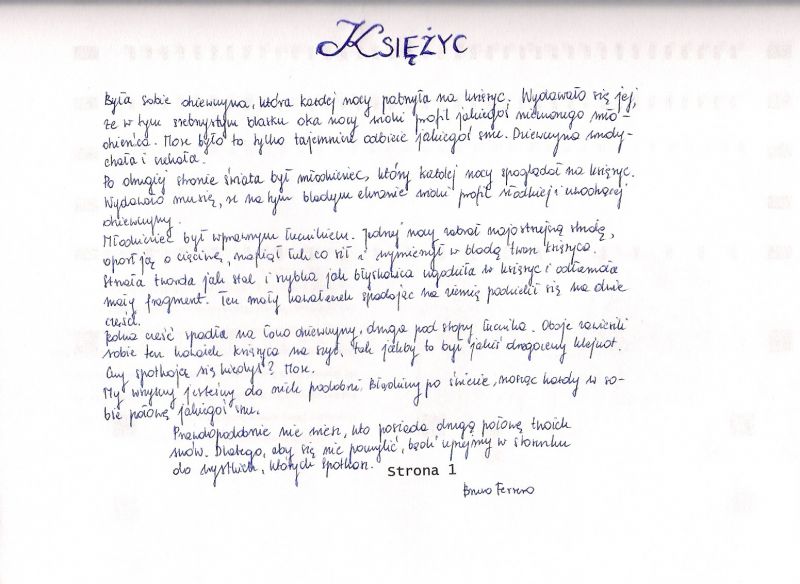 KSIĘŻYC
Była sobie dziewczyna, która każdej nocy patrzyła na księżyc. Wydawało się jej,
że w tym srebrzystym blasku oka nocy widzi profil jakiegoś nieznanego mło-
dzieńca. Może było to tylko tajemnicze odbicie jakiegoś snu. Dziewczyna wzdy-
chała i czekała.
Po drugiej stronie świata był młodzieniec, który każdej nocy spoglądał na księżyc.
Wydawało mu się, że na tym bladym ekranie widzi profil słodkiej i kochającej
dziewczyny.
Młodzieniec był wprawnym łucznikiem. Jednej nocy zabrał najostrzejszą strzałę,
oparł ją o cięciwę, napiął łuk co sił i wymierzył w bladą twarz księżyca.
Strzała twarda jak stal i szybka jak błyskawica ugodziła w księżyc i odłamała
mały fragment. Ten mały kawałeczek spadając na ziemię podzielił się na dwie
części.
Jedna część spadła na łono dziewczyny, druga pod stopy łucznika. Oboje zawiesili
sobie ten kawałek księżyca na szyi, tak jakby to był jakiś drogocenny klejnot.
Czy spotkają się kiedyś? Może.
My wszyscy jesteśmy do nich podobni. Błądzimy po świecie, nosząc każdy w so-
bie połowę jakiegoś snu.
Prawdopodobnie nie wiesz, kto posiada drugą połowę twoich
snów. Dlatego, aby się nie pomylić, bądź uprzejmy w stosunku
do wszystkich, których spotkasz.
Strona 1
Bruno Ferrero